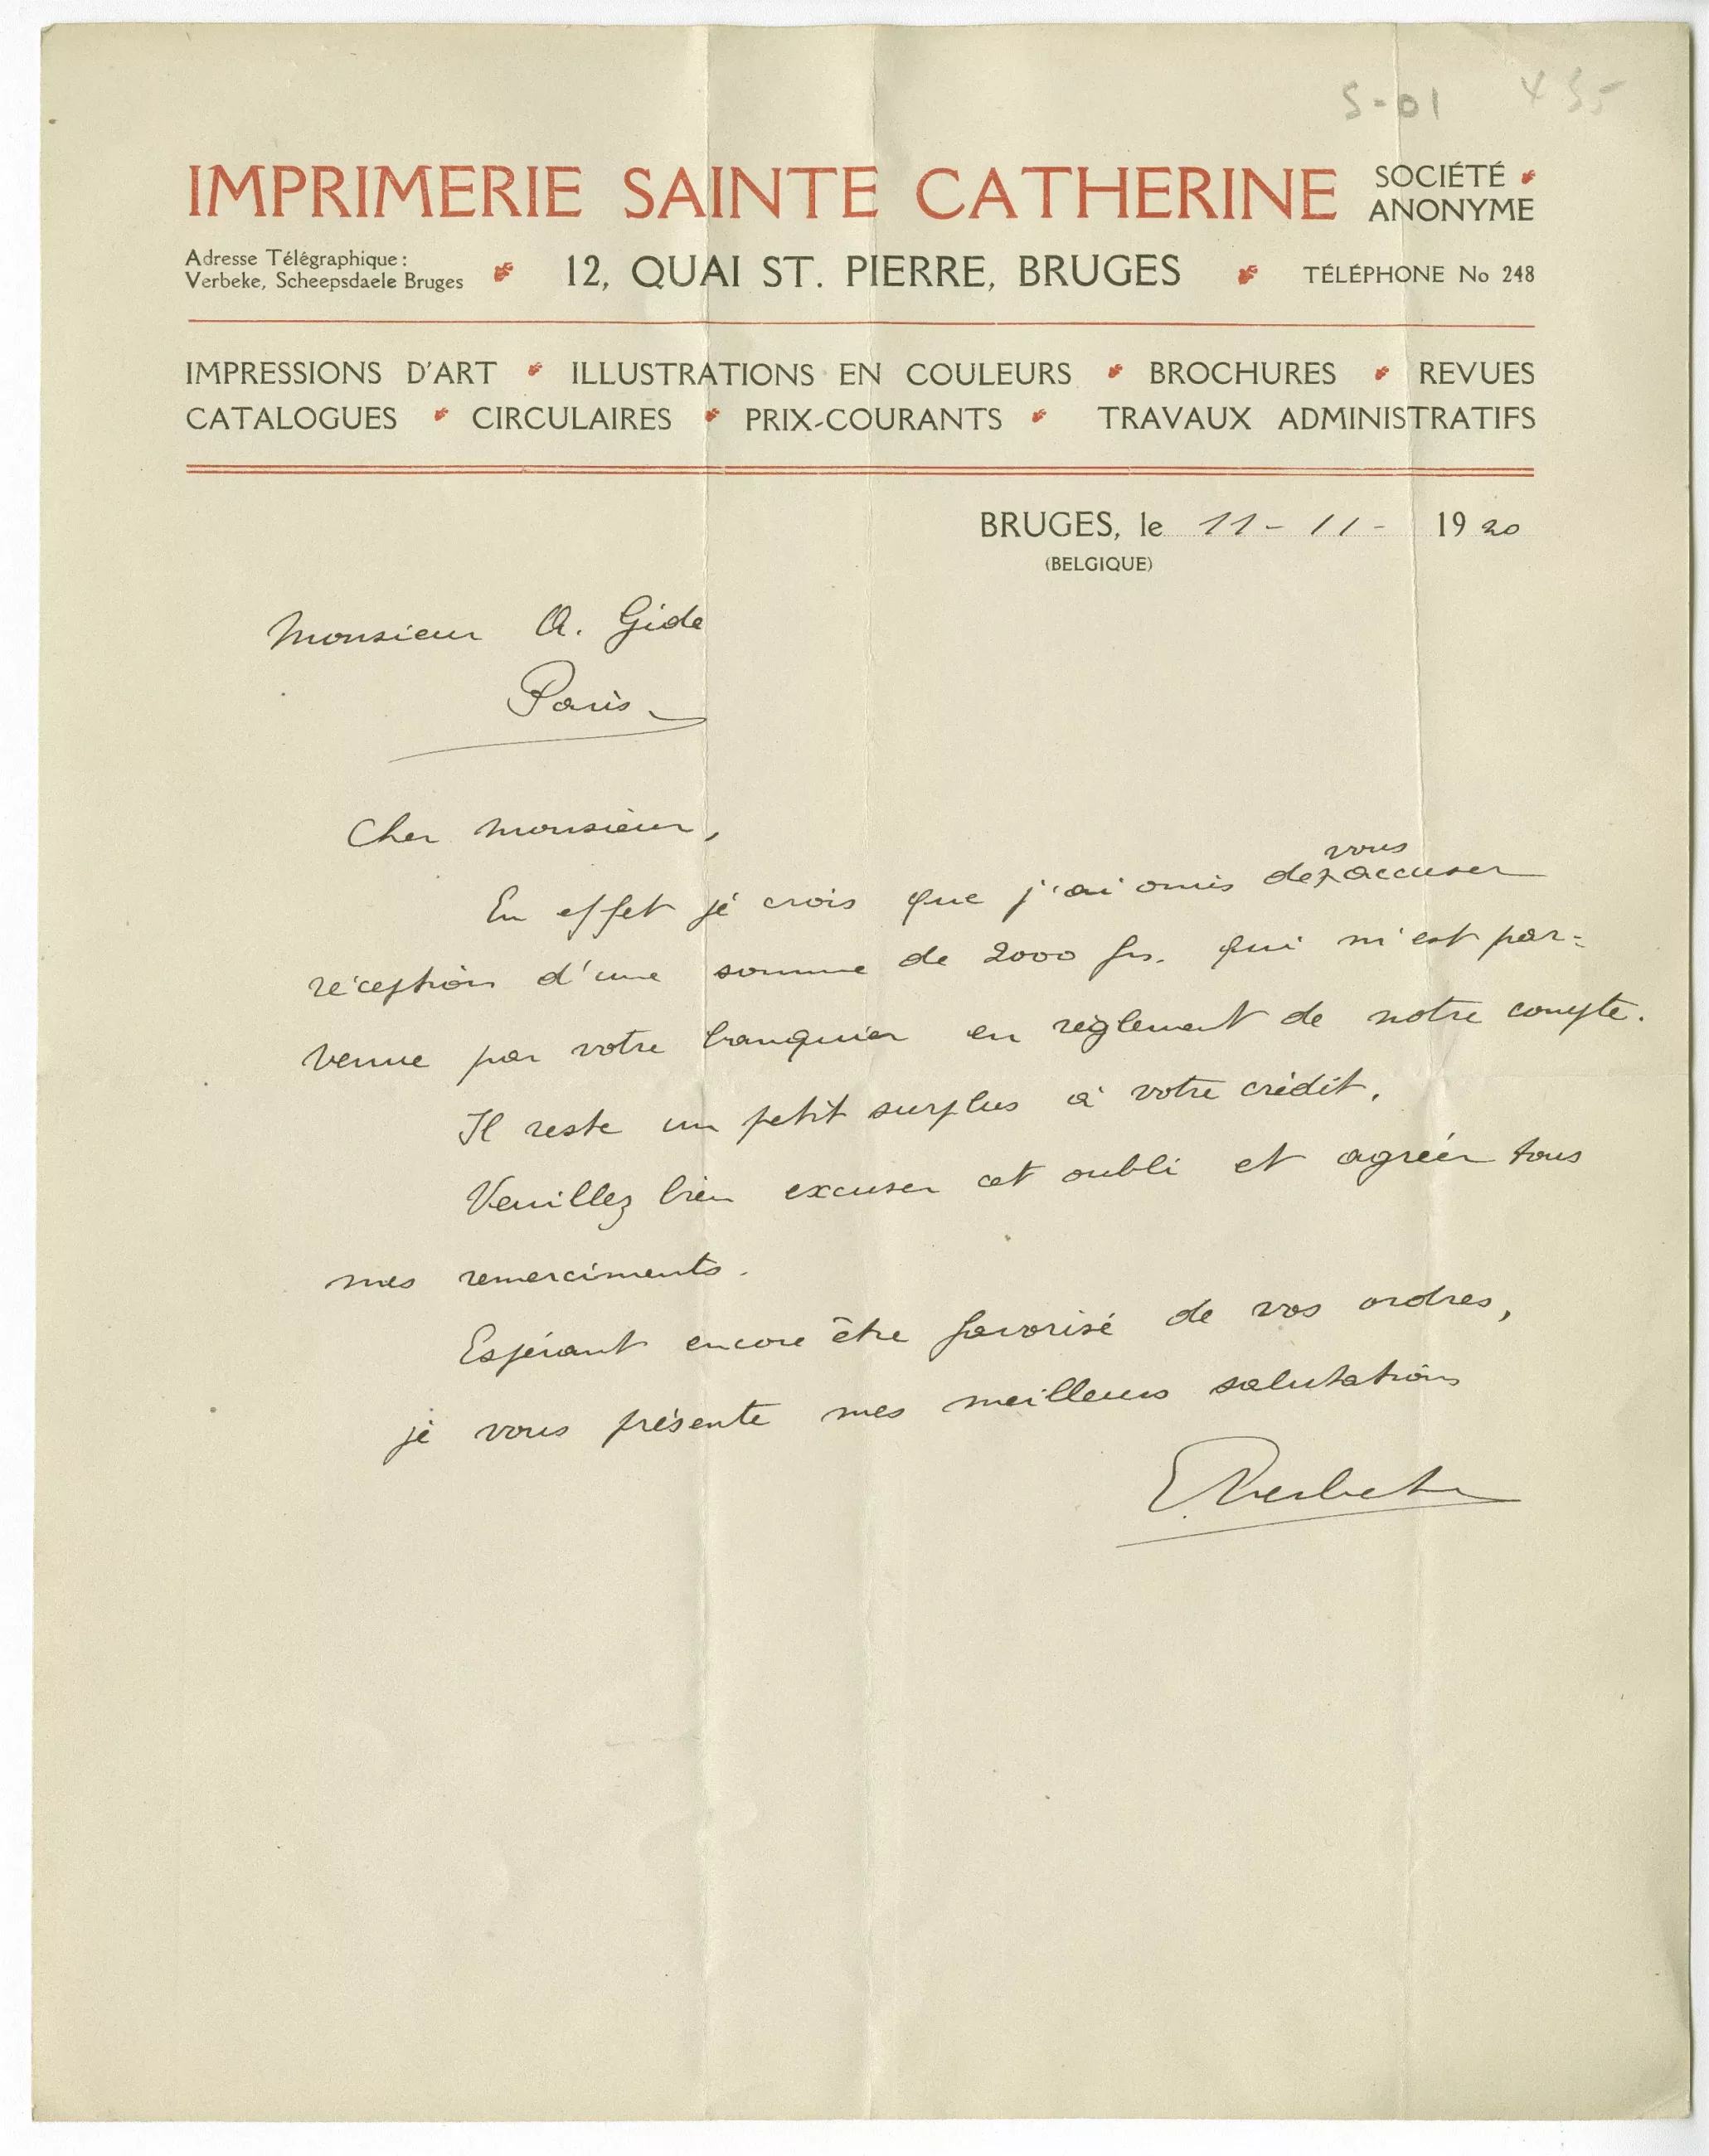 S-01 435
IMPRIMERIE SAINTE CATHERINE SOCIÉTÉ
ANONYME
Adresse Télégraphique :
Verbeke, Scheepsdaele Bruges
12, QUAI ST. PIERRE, BRUGES
TÉLÉPHONE No 248
IMPRESSIONS D'ART ILLUSTRATIONS EN COULEURS BROCHURES REVUES
CATALOGUES CIRCULAIRES PRIX-COURANTS TRAVAUX ADMINISTRATIFS
BRUGES, le 11-11- 1920
(BELGIQUE)
Monsieur A. Gide
Paris
Cher monsieur,
vous
En effet je crois que j'ai omis de accuser
réception d'une somme de 2000 frs. qui m'est par=
venue par votre banquier en règlement de notre compte.
Il reste un petit surplus à votre crédit.
Veuillez bien excuser cet oubli et agréer tous
mes remerciments.
Espérant encore être favorisé de vos ordres,
je vous présente mes meilleurs salutations
E Verbeke